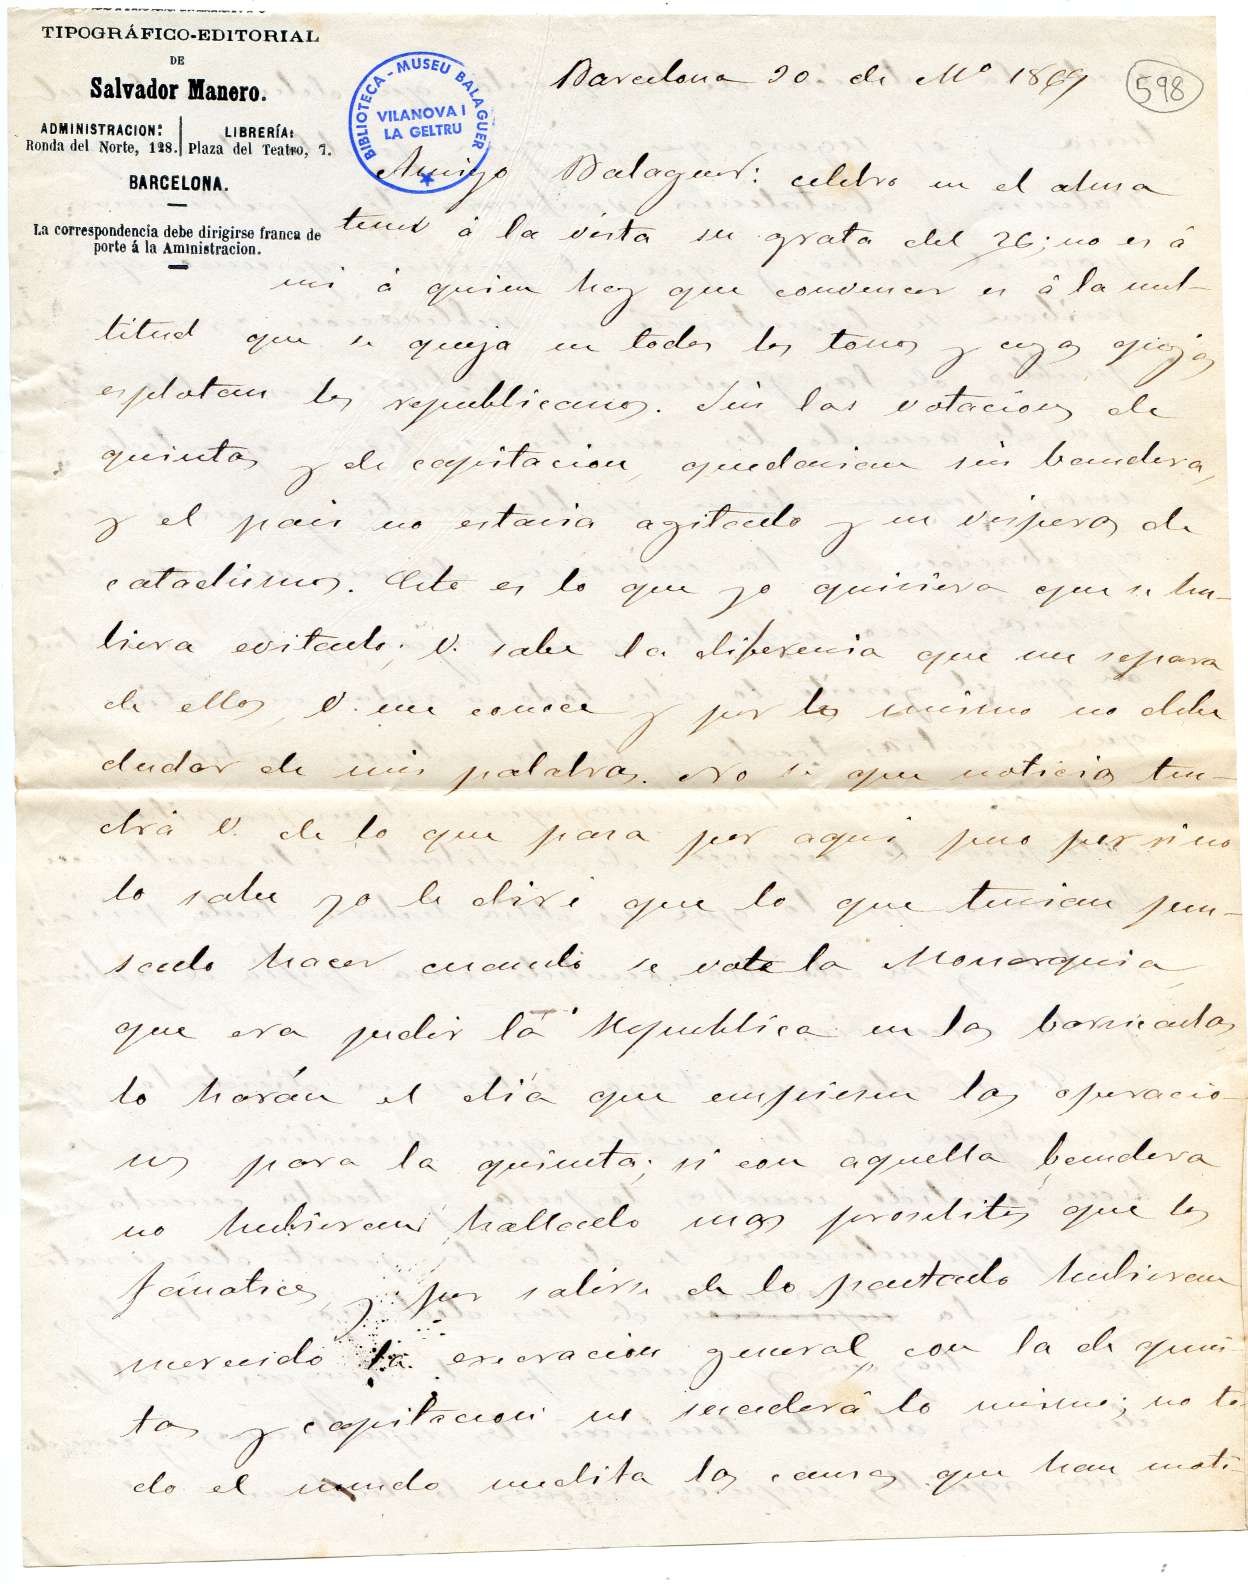 TIPOGRÁFICO-EDITORIAL
DE
Salvador Manero.
ADMINISTRACION: LIBRERÍA:
Ronda del Norte, 128. Plaza del Teatro, 7.
BARCELONA.
La correspondencia debe dirigirse franca de
porte á la Aministracion.
BIBLIOTECA-MUSEU BALAGUER
VILANOVA I
LA GELTRU
598
Barcelona 30 de Mº 1869
Amigo Balaguer: celebro en el alma
tener á la vista su grata del 26; no es á
mi á quien hay que convencer es á la mul-
titud que se queja en todos los tonos y cuyas quejas
esplotan los republicanos. Sin las votaciones de
quintas y de capitacion, quedarian sin bandera,
y el pais no estaria agitado y en visperas de
cataclismos. Esto es lo que yo quisiera que se hu-
biera evitado; V. sabe la diferencia que me separa
de ellos, V. me conoce y por lo mismo no debe
dudar de mis palabras. No se que noticias ten-
drá V. de lo que pasa por aqui, pero por si no
lo sabe yo le diré que lo que tenian pen-
sado hacer cuando se vote la Monarquia,
que era pedir la Republica en las barricadas,
lo harán el dia que empiesen las operacio-
nes para la quinta; si con aquella bandera
no hubieran hallado mas proselitos que los
fánaticos, y por salirse de lo pactado hubieran
merecido la execracion general, con la de quin-
tas y capitacion no sucederá lo mismo; no to-
do el mundo medita las causas que han moti-